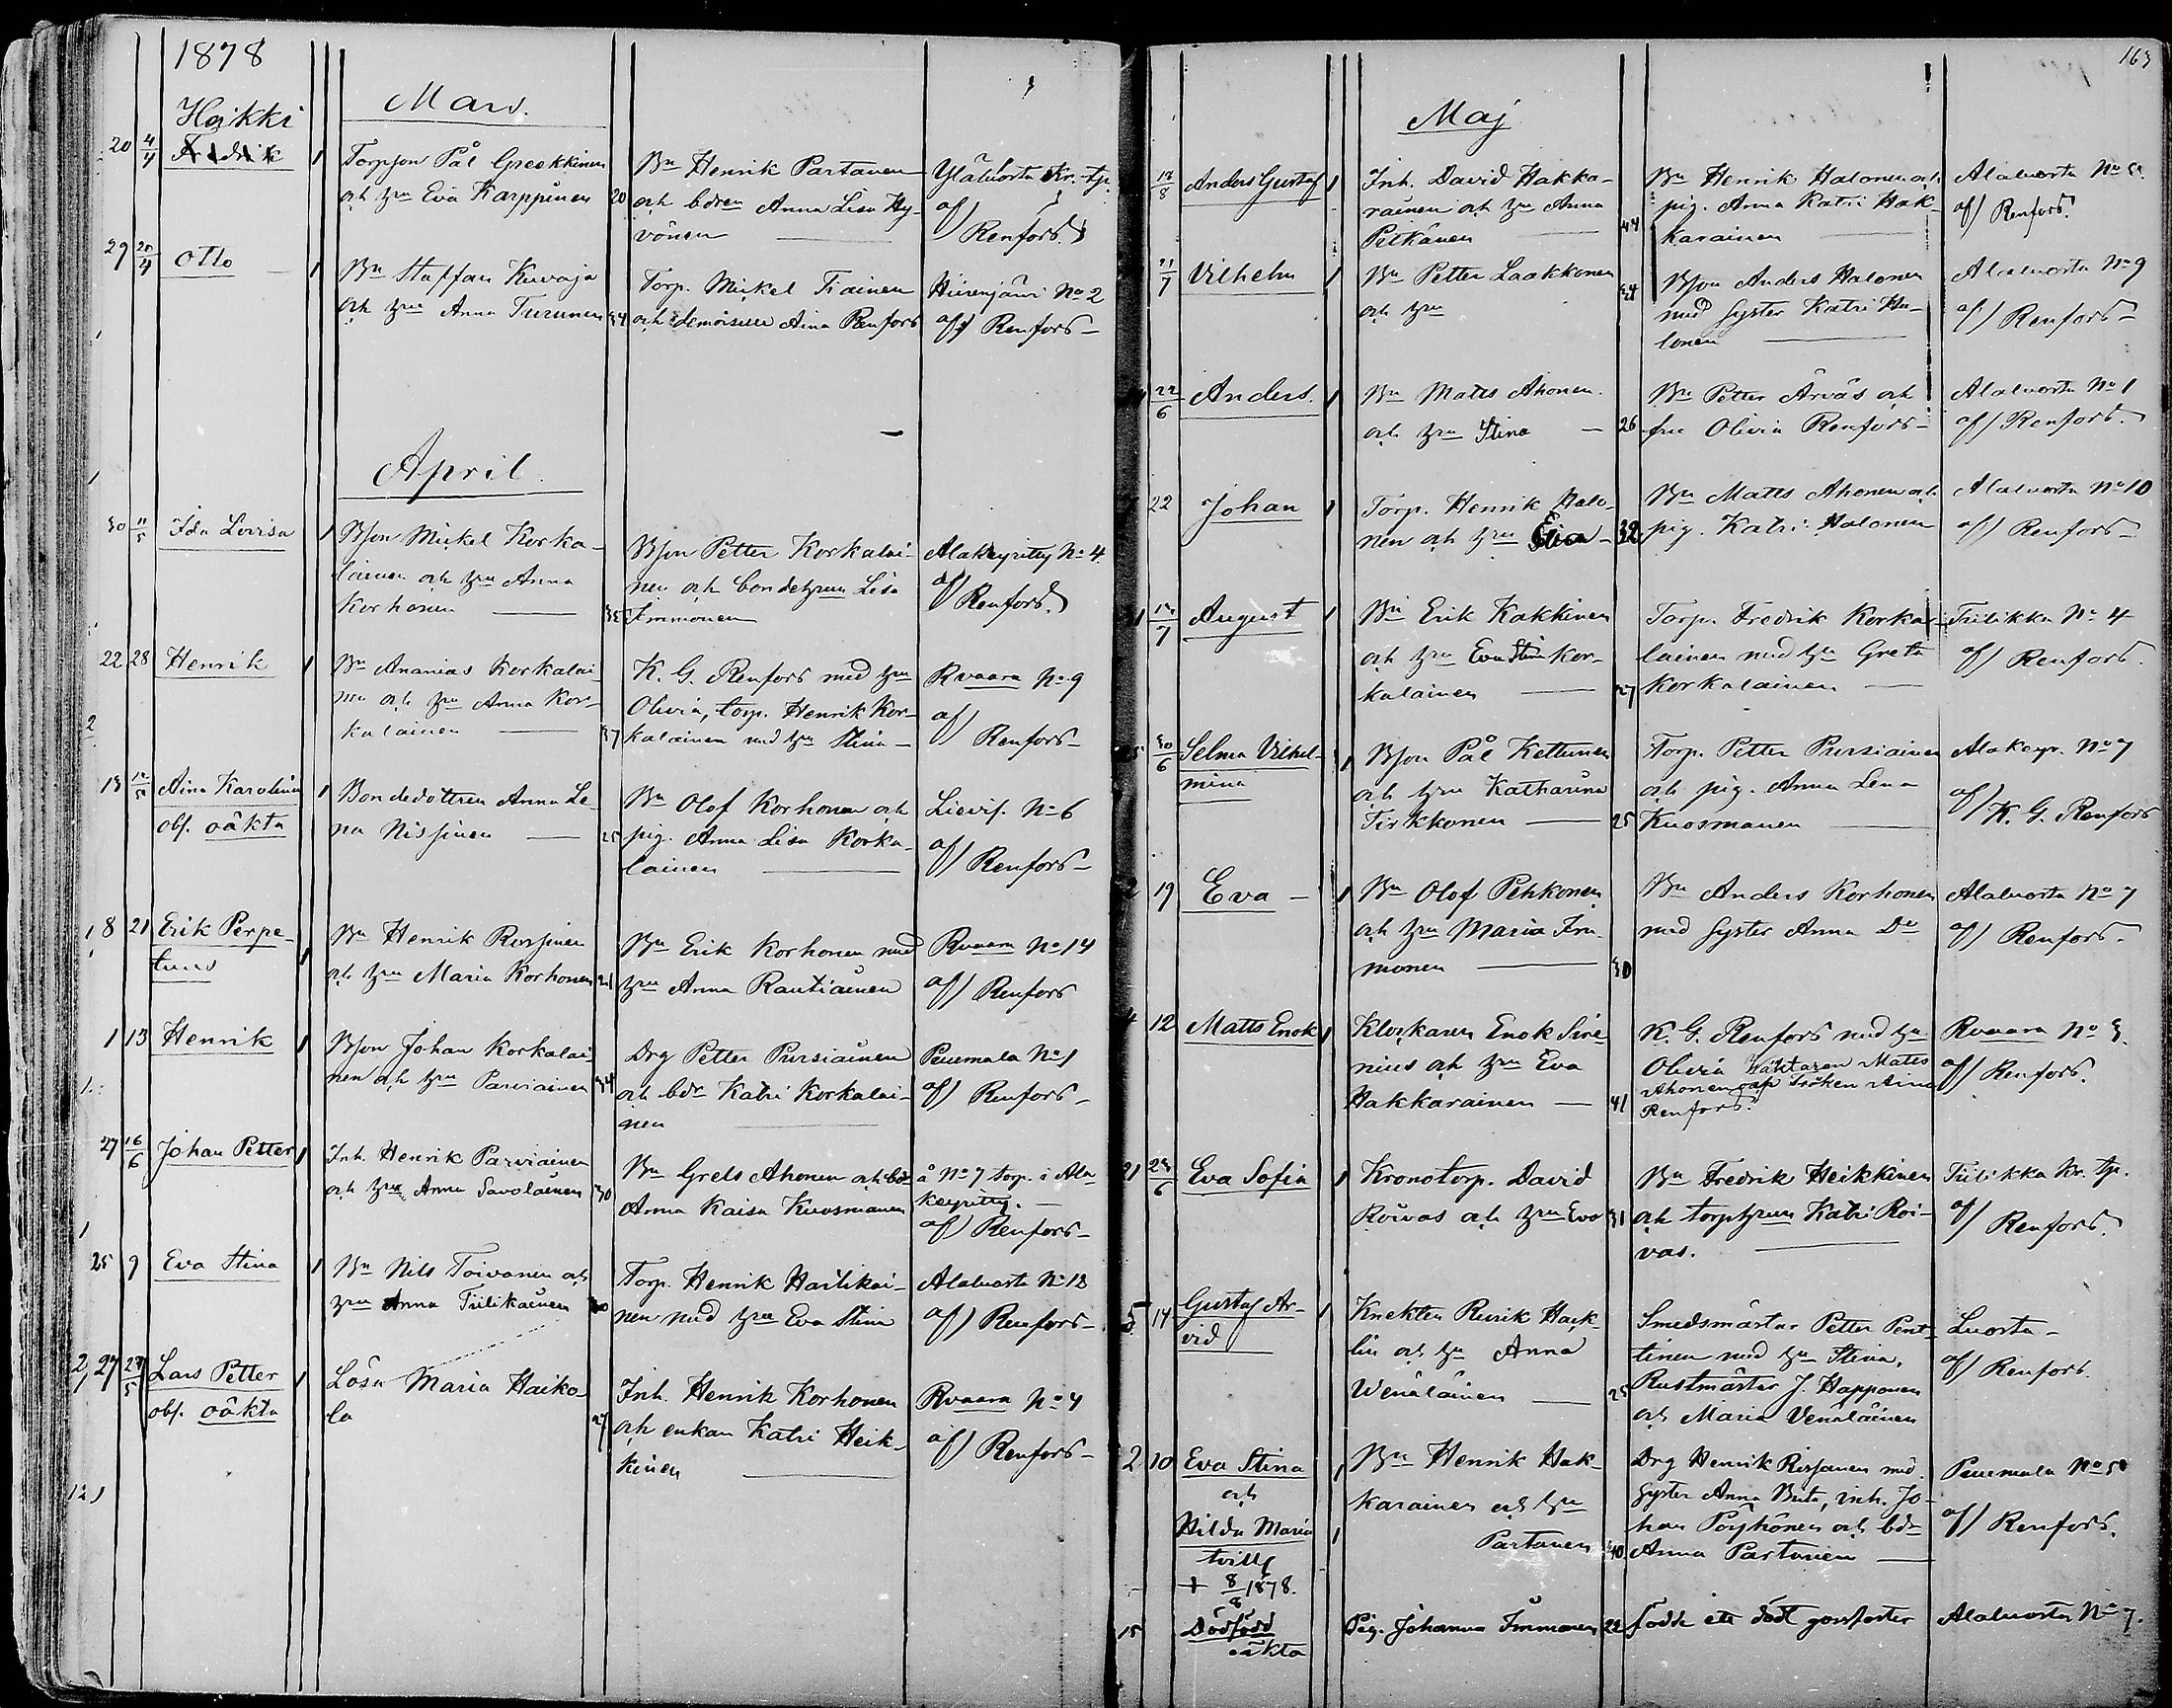 1878
Mars.
Heikki
20 4/4 Fredrik 1
Torpson Pål
och hru Eva Karppinen 20
Bn Henrik Partanen
och bdren Anna Lisa Hy-
vönen
Yläluosta Kr. tp.
af) Renfors
29 20/4 Otto 1
Bn Staffan Kuvaja
och hru Anna Turunen 34
Torp. Mickel Tiainen
och demoiselle Aina Renfors
Hiirenjärvi No 2
af) Renfors
April.
30 11/5 Ida Lovisa 1
Bson Mickel Korka-
lainen och hru Anna
Korhonen 35
Bson Petter Korkalai-
nen och bondehrun Lisa
Immonen
Alakeyritty No 4.
af) Renfors
22 28 Henrik 1
Bn Ananias Korkalai-
nen och hru Anna Kor-
kalainen 37
K. G. Renfors med hru
Olivia, torp. Henrik Kor-
kalainen med hru Stina
Rvaara No 9
af) Renfors
13 12/5 Aina Karolina 1
obs. oäkta
Bondedottren Anna Le-
na Nissinen 25
Bn Olof Korhonen och
pig. Anna Lisa Korka-
lainen
No 6
af) Renfors
18 21 Erik Perpe-
tuus 1
Bn Henrik
och hru Maria Korhonen 21
Bn Erik Korhonen med
hru Anna Rautiainen
Rvaara No 14
af) Renfors
1 13 Henrik 1
Bson Johan Korkalai-
nen och hru Parviainen 34
Drg Petter Pursiainen
och bdr Katri Korkalai-
nen
Petäjämäki No 1
af) Renfors
27 16/6 Johan Petter 1
Inh. Henrik Parviainen
och hru Anna Savolainen 30
Bn Grels Ahonen och bdr
Anna Kaisa Kuosmanen
å No 7 torp. i Ala
keyritty.
af) Renfors
25 9 Eva Stina 1
Bn Nils Toivanen och
hru Anna Tiilikainen
Torp. Henrik Hartikai-
nen med hru Eva Stina
Alaluosta No 12
af) Renfors
27 27/5 Lars Petter 1
obs. oäkta
Lösa Maria Haiko-
la 27
Inh. Henrik Korhonen
och enkan Katri Heik-
kinen
Rvaara No 4
af) Renfors
12)
163
Maj
Anders Gustaf 1
Inh. David Hakka-
rainen och hru Anna
Pitkänen 44
Bn Henrik Halonen och
pig. Anna Katri Hak-
karainen
Alaluosta
af) Renfors.
Vilhelm 1
Bn Petter Laakkonen
och hru 34
Bson Anders Halonen
med syster Katri Ha-
lonen
Alaluosta No 9
af) Renfors
22/6 Anders. 1
Bn Matts Ahonen
och hru Stina 26
Bn Petter Ärväs och
fru Olivia Renfors
Alaluosta No 1
af) Renfors.
22 Johan 1
Torp. Henrik Halo-
nen och hru 32
Bn Matts Ahonen och
pig. Katri Halonen
Alaluosta No 10
af) Renfors
August 1
Bn Erik Kakkinen
och hru Eva Stina Kor-
kalainen 27
Torp. Fredrik Korka-
lainen med hru Greta
Korkalainen
Tiilikka No 4
af) Renfors.
30/6 Selma Vilhel-
mina 1
Bson Pål Kettunen
och hru Katharina
Tirkkonen 25
Torp. Petter Pursiainen
och pig. Anna Lena
Kuosmanen
Alakeyr. No 7
af) K. G. Renfors
19 Eva 1
Bn Olof Pehkonen
och hru Maria Im-
monen 30
Bn Anders Korhonen
med syster Anna Do
Alaluosta No 7
af) Renfors.
12 Matts Enok 1
Klockaren Enok Sire-
nius och hru Eva
Hakkarainen 41
K. G. Renfors med hru
Olivia Väktaren Matts
Ahonen och Fröken Aina
Renfors.
Rvaara No 3.
af) Renfors.
21 23/6 Eva Sofia 1
Kronotorp. David
Roivas och hru Eva 31
Bn Fredrik Heikkinen
och torphrun Katri Roi-
vas.
Tiilikka Kr. tp.
af) Renfors.
5 14 Gustaf Ar-
vid 1
Knekten Rurik Hack-
lin och hru Anna
Wenäläinen 25
Smedsmästar Petter Pent-
tinen med hru Stina,
Rustmästar J. Happonen
och Maria Venäläinen
Luosta
af) Renfors.
2 10 Eva Stina 1
och
Hilda Maria 1
tvill
+ 8/8 1878.
Bn Henrik Hak-
karainen och hru
Partanen 40
Drg Henrik Rissanen med
syster Anna Brita, inh. Jo-
han Pöyhönen och bdr
Anna Partanen
No 5
af) Renfors.
15 Dödfödd
oäkta
Pig. Johanna Immonen 22
födde ett dödt gossfoster
Alaluosta No 7.